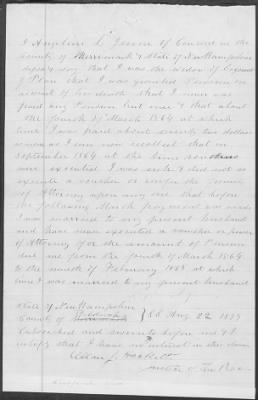 I Angeline L. of Concord in the
county of Merrimack & State of New Hampshire
depose & say that I was the widow of
that I was granted Pension on
account of his death that I never was
paid any Pension but once & that about
the fourth of March 1864 at which
time I was paid about seventy two dollars
when as I can now recollect that in
September 1864 at the time vouchers
were executed I was sick & did not so
execute a voucher or confer the Power
of Attorney upon any one that before
the following March payment was made
I was married to my present husband
and have never executed a voucher or power
of Attorney for the amount of Pension
due me from the fourth of March 1864
to the of February 1865 at which
time I was married to my present husband
State of New Hampshire
County of } SS Aug 22 1883
Subscribed and sworn to before me & I
certify that I have no interest in the claim
Justice of the Peace